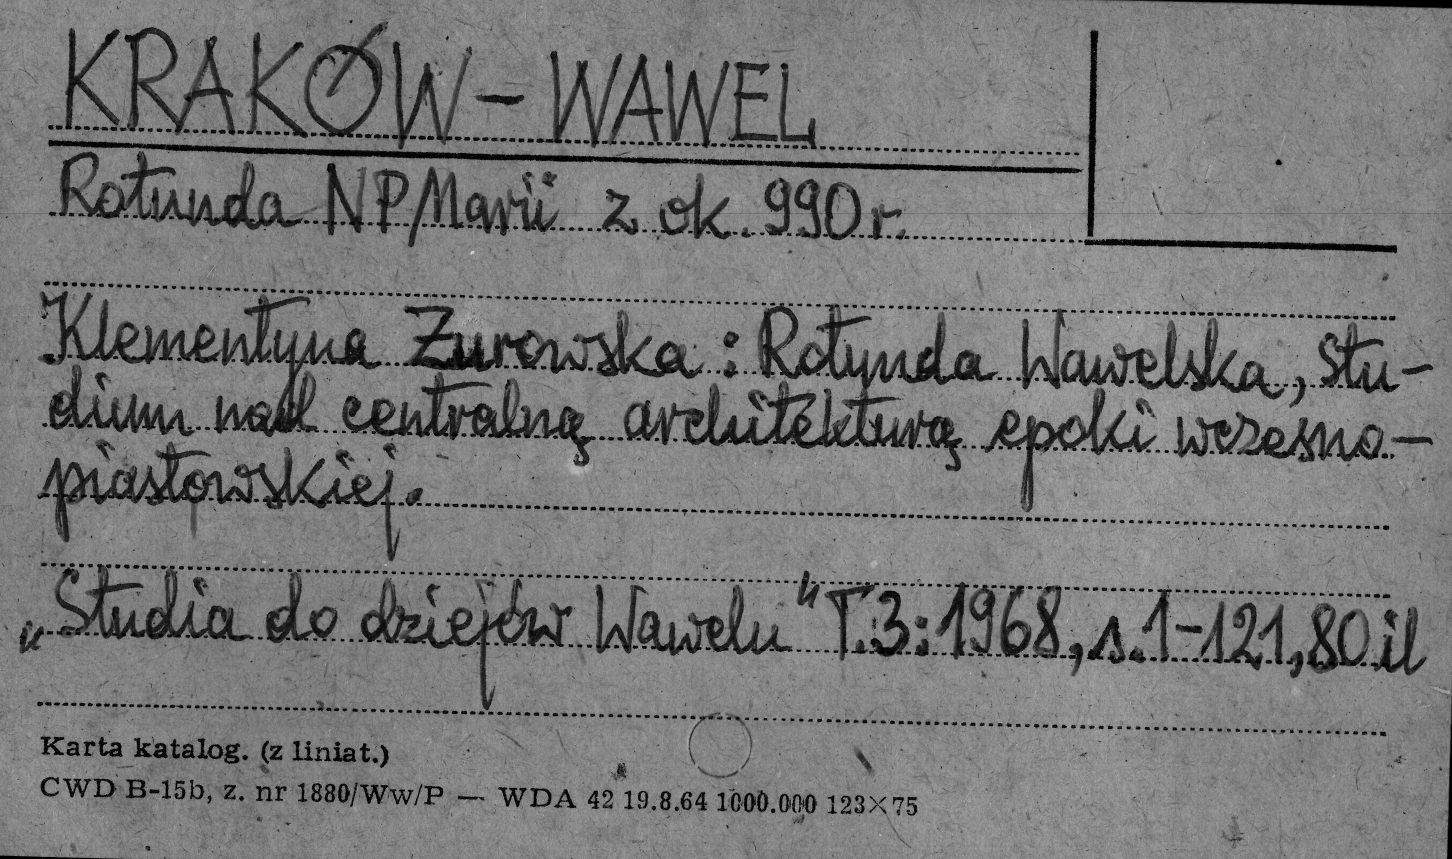 KRAKÓW – WAWEL
Rotunda NPMarii z ok. 990 r.
Klementyna Żurowska : Rotunda Wawelska, Stu-
dium nad centralną architekturą epoki wczesno-
piastowskiej.
„Studia do dziejów Wawelu" T.3: 1968, s. 1-121, 80 il
Karta katalog. (z liniat.)
CWD B-15b, z. nr 1880/Ww/P — WDA 42 19.8.64 1000.000 123×75